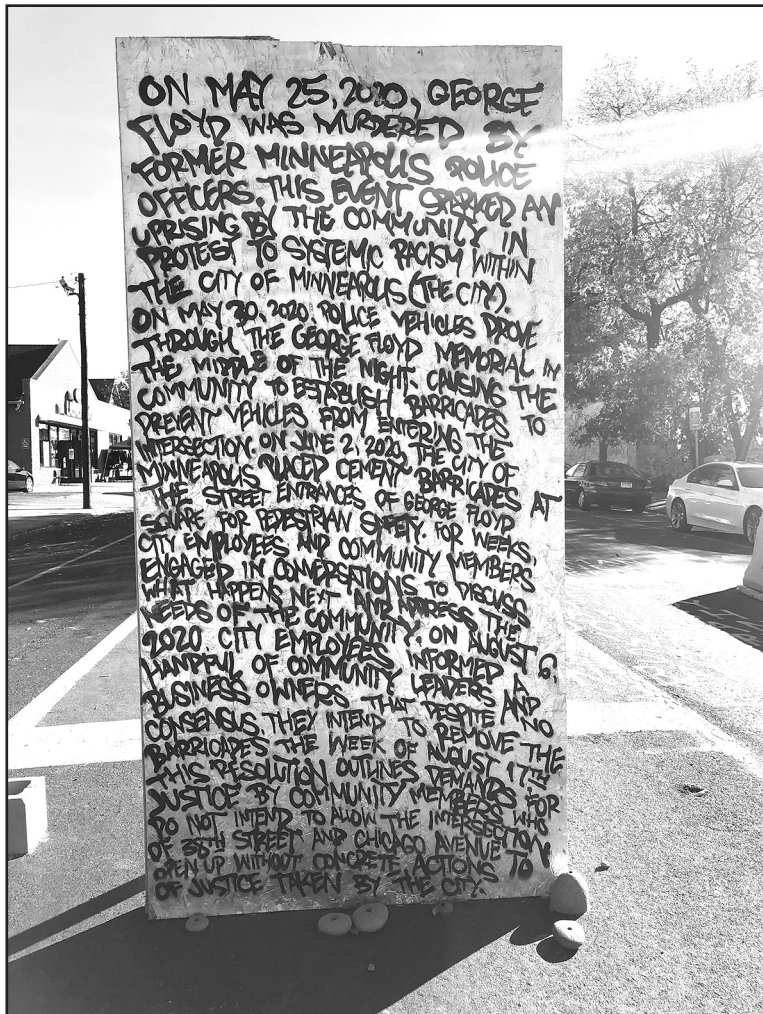 ON MAY 25, 2020, GEORGE
FLOYD WAS MURDERED BY
FORMER MINNEAPOLIS POLICE
OFFICERS. THIS EVENT SPARKED AN
UPRISING BY THE COMMUNITY IN
PROTEST TO SYSTEMIC RACISM WITHIN
THE CITY OF MINNEAPOLIS (THE CITY).
ON MAY 30, 2020, POLICE VEHICLES DROVE
THROUGH THE GEORGE FLOYD MEMORIAL IN
THE MIDDLE OF THE NIGHT. CAUSING THE
COMMUNITY TO ESTABLISH BARRICADES TO
PREVENT VEHICLES FROM ENTERING THE
INTERSECTION. ON JUNE 2, 2020, THE CITY OF
MINNEAPOLIS PLACED CEMENT BARRICADES AT
THE STREET ENTRANCES OF GEORGE FLOYD
SQUARE FOR PEDESTRIAN SAFETY. FOR WEEKS,
CITY EMPLOYEES AND COMMUNITY MEMBERS
ENGAGED IN CONVERSATIONS TO DISCUSS
WHAT HAPPENS NEXT AND ADDRESS THE
NEEDS OF THE COMMUNITY. ON AUGUST 6,
2020, CITY EMPLOYEES INFORMED A
HANDFUL OF COMMUNITY LEADERS AND
BUSINESS OWNERS THAT DESPITE NO
CONSENSUS. THEY INTEND TO REMOVE THE
BARRICADES THE WEEK OF AUGUST 17TH.
THIS RESOLUTION OUTLINES DEMANDS FOR
JUSTICE BY COMMUNITY MEMBERS WHO
DO NOT INTEND TO ALLOW THE INTERSECTION
OF 38TH STREET AND CHICAGO AVENUE TO
OPEN UP WITHOUT CONCRETE ACTIONS
OF JUSTICE TAKEN BY THE CITY.